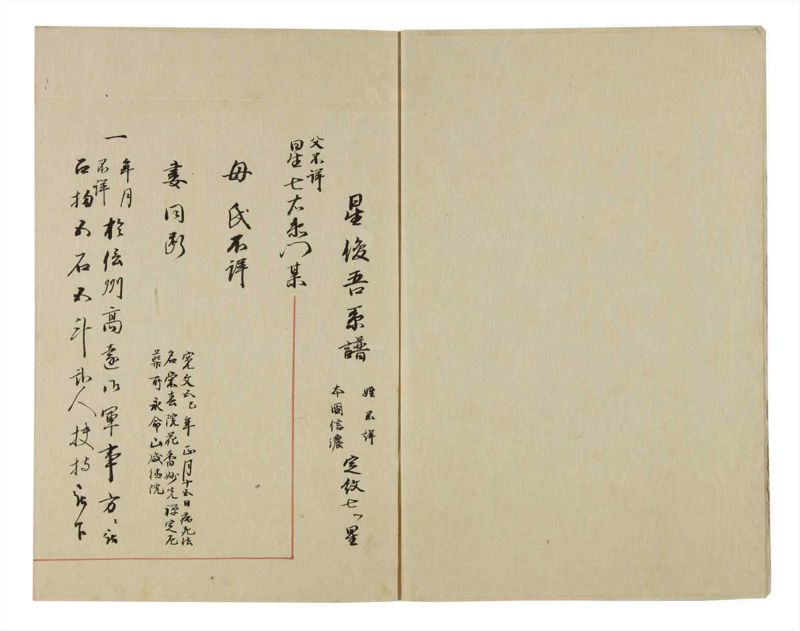 星俊吾系譜
姓不詳
本國信濃
定紋七ツ星
父不詳
星七右衛門某
母氏不詳
妻同断
寛文五乙巳年正月十五日病死法
名栄春院花香妙光禅定尼
葬所永命山盛徳院
一年月不詳於信州高遠御軍事方ニ被
召抱五石五斗弐人扶持被下